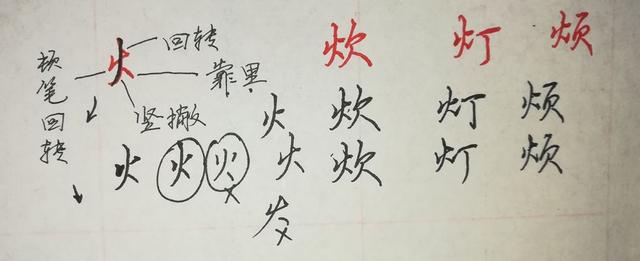 火 回转 炊 灯 烦
顿笔回转
靠里
竖撇
火 炊 灯 烦
火 火 火 火 炊 灯 烦